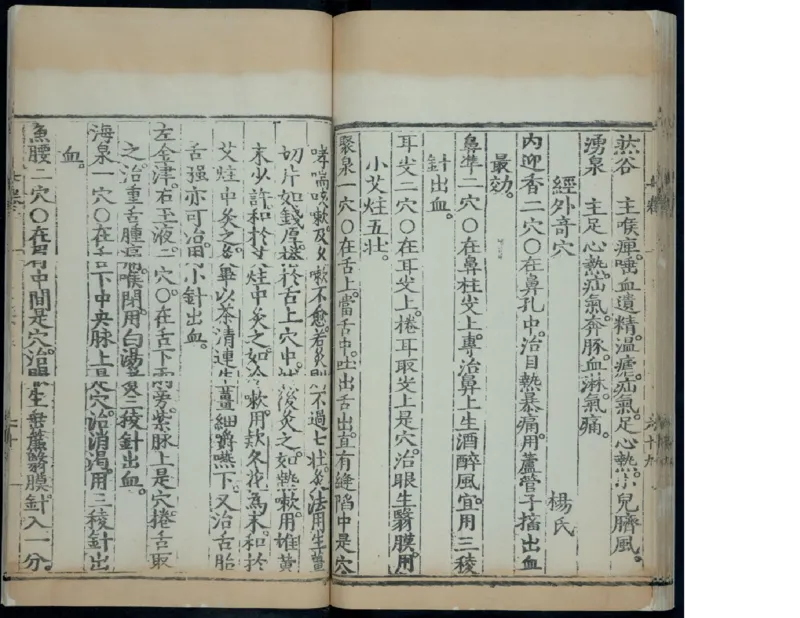 然谷　主喉痺。唾血。遺精。溫瘧。疝氣。足心熱。小兒臍風。
湧泉　主足心熱。疝氣。奔豚。血淋。氣痛。
經外奇穴　楊氏
內迎香二穴○在鼻孔中。治目熱暴痛。用蘆管子搐出血
最効。
鼻準二穴○在鼻柱尖上。專治鼻上生酒醉風。宜用三稜
針出血。
耳尖二穴○在耳尖上。捲耳取尖上是穴。治眼生翳膜。用
小艾炷五壯。
聚泉一穴○在舌上。當舌中。吐出舌。出直有縫陷中是穴
哮喘咳嗽。及久嗽不愈。若灸則不過七壯。灸法用生薑
切片如錢厚。搭於舌上穴中。後灸之。如熱嗽用雄黃
末少許和於艾炷中灸之。如冷嗽。用款冬花為末和於
艾炷中灸之。灸畢以茶清連生薑細嚼嚥下。又治舌胎
舌强亦可治。用小針出血。
左金津。右玉液二穴○在舌下兩旁。紫脉上是穴。捲舌取
之。治重舌腫痛。喉閉。用白湯煮三稜針出血。
海泉一穴○在舌下中央脉上是穴。治消渴。用三稜針出
血。
魚腰二穴○在眉中間是穴。治眼生垂簾翳膜。針入一分。